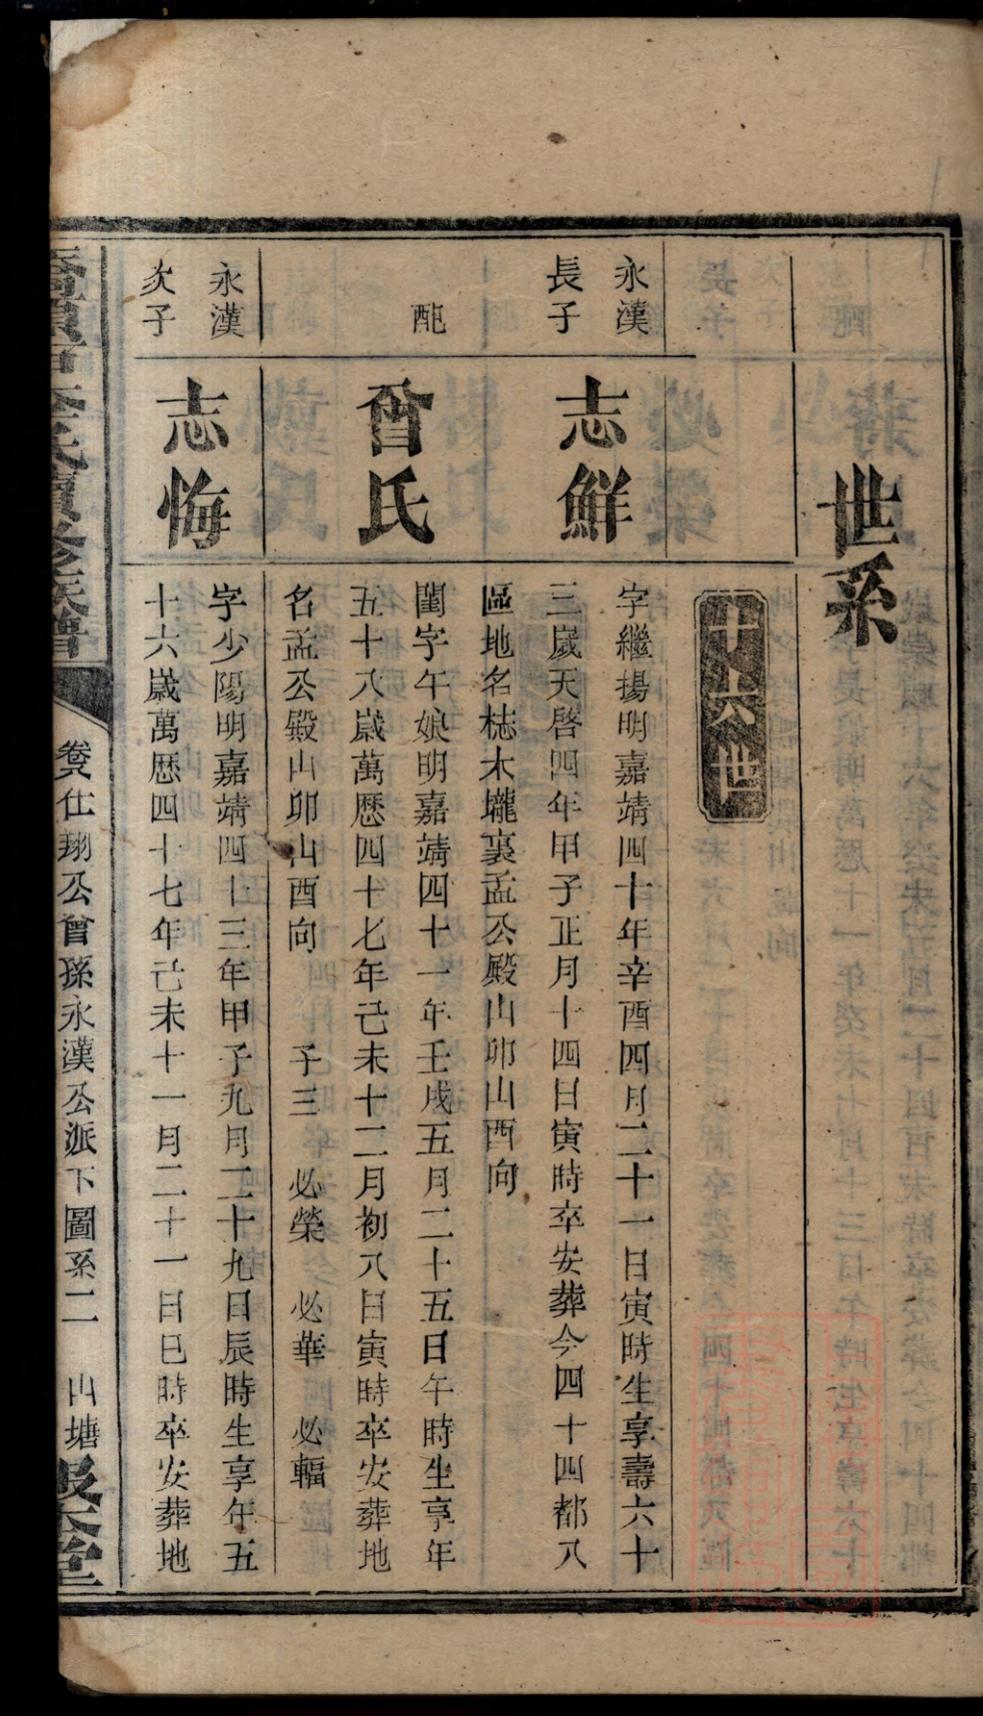 世系
廿六世
永漢
長子
志鮮
字繼揚明嘉靖四十年辛酉四月二十一日寅時生享壽六十
三歲天啓四年甲子正月十四日寅時卒安葬今四十四都八
區地名梽木壠裏孟公殿山卯山酉向
配
曾氏
閨字午娘明嘉靖四十一年壬戌五月二十五日午時生享年
五十八歲萬歷四十七年己未十二月初八日寅時卒安葬地
名孟公殿山卯山酉向 子三 必榮 必華 必輻
永漢
次子
志悔
字少陽明嘉靖四十三年甲子九月二十九日辰時生享年五
十六歲萬歷四十七年己未十一月二十一日巳時卒安葬地
氏續修族譜
卷八 仕翔公曾孫永漢公派下圖系二 山塘 報本堂